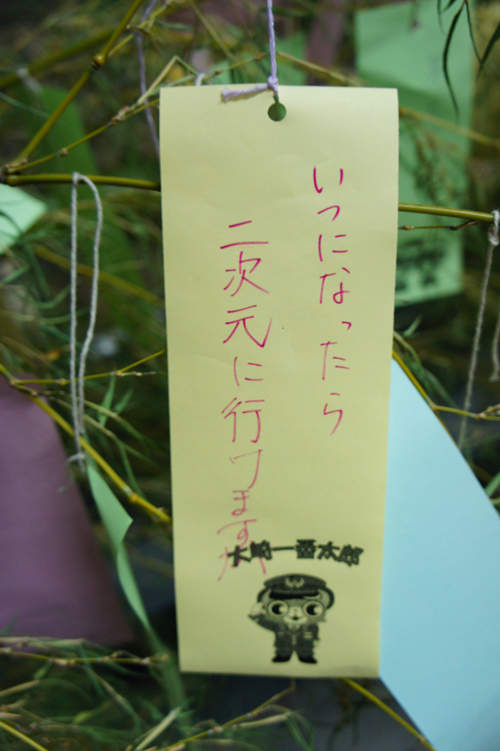 いつになったら
二次元に行けますか
大崎一番太郎